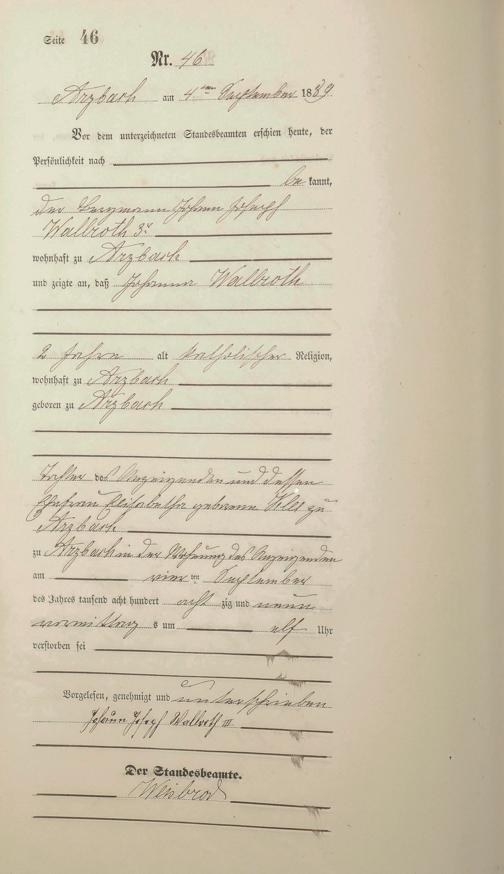 Seite 46
Nr. 46
Arzbach am 4ten September 1889
Vor dem unterzeichneten Standesbeamten erschien heute, der
Persönlichkeit nach
be kannt,
der Bergmann Johann Joseph
Walbroth 3r
wohnhaft zu Arzbach
und zeigte an, daß Johanna Walbroth
2 Jahre alt katholischer Religion,
wohnhaft zu Arzbach
geboren zu Arzbach
Tochter des Anzeigenden und dessen
Ehefrau Elisabetha geborene Klee zu
Arzbach
zu Arzbach in der Wohnung des Anzeigenden
am vier ten September
des Jahres tausend acht hundert acht zig und neun
vormittag s um elf Uhr
verstorben sei
Vorgelesen, genehmigt und unterschrieben
Johann Joseph Walbroth III
Der Standesbeamte.
Weisbrod